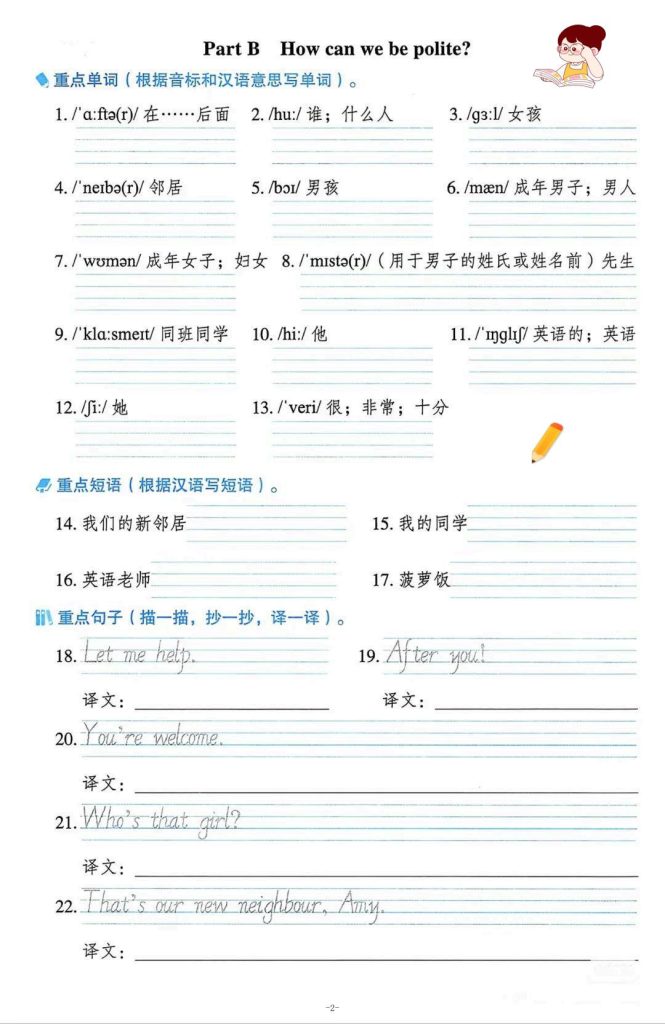 Part B How can we be polite?
重点单词（根据音标和汉语意思写单词）。
1. /ˈɑ:ftə(r)/ 在……后面 2. /hu:/ 谁；什么人 3. /gɜ:l/ 女孩
4. /ˈneɪbə(r)/ 邻居 5. /bɔɪ/ 男孩 6. /mæn/ 成年男子；男人
7. /ˈwʊmən/ 成年女子；妇女 8. /ˈmɪstə(r)/（用于男子的姓氏或姓名前）先生
9. /ˈklɑ:smeɪt/ 同班同学 10. /hi:/ 他 11. /ˈɪŋglɪʃ/ 英语的；英语
12. /ʃi:/ 她 13. /ˈveri/ 很；非常；十分
重点短语（根据汉语写短语）。
14. 我们的新邻居 15. 我的同学
16. 英语老师 17. 菠萝饭
重点句子（描一描，抄一抄，译一译）。
18. Let me help. 19. After you!
译文： 译文：
20. You're welcome.
译文：
21. Who's that girl?
译文：
22. That's our new neighbour, Amy.
译文：
-2-